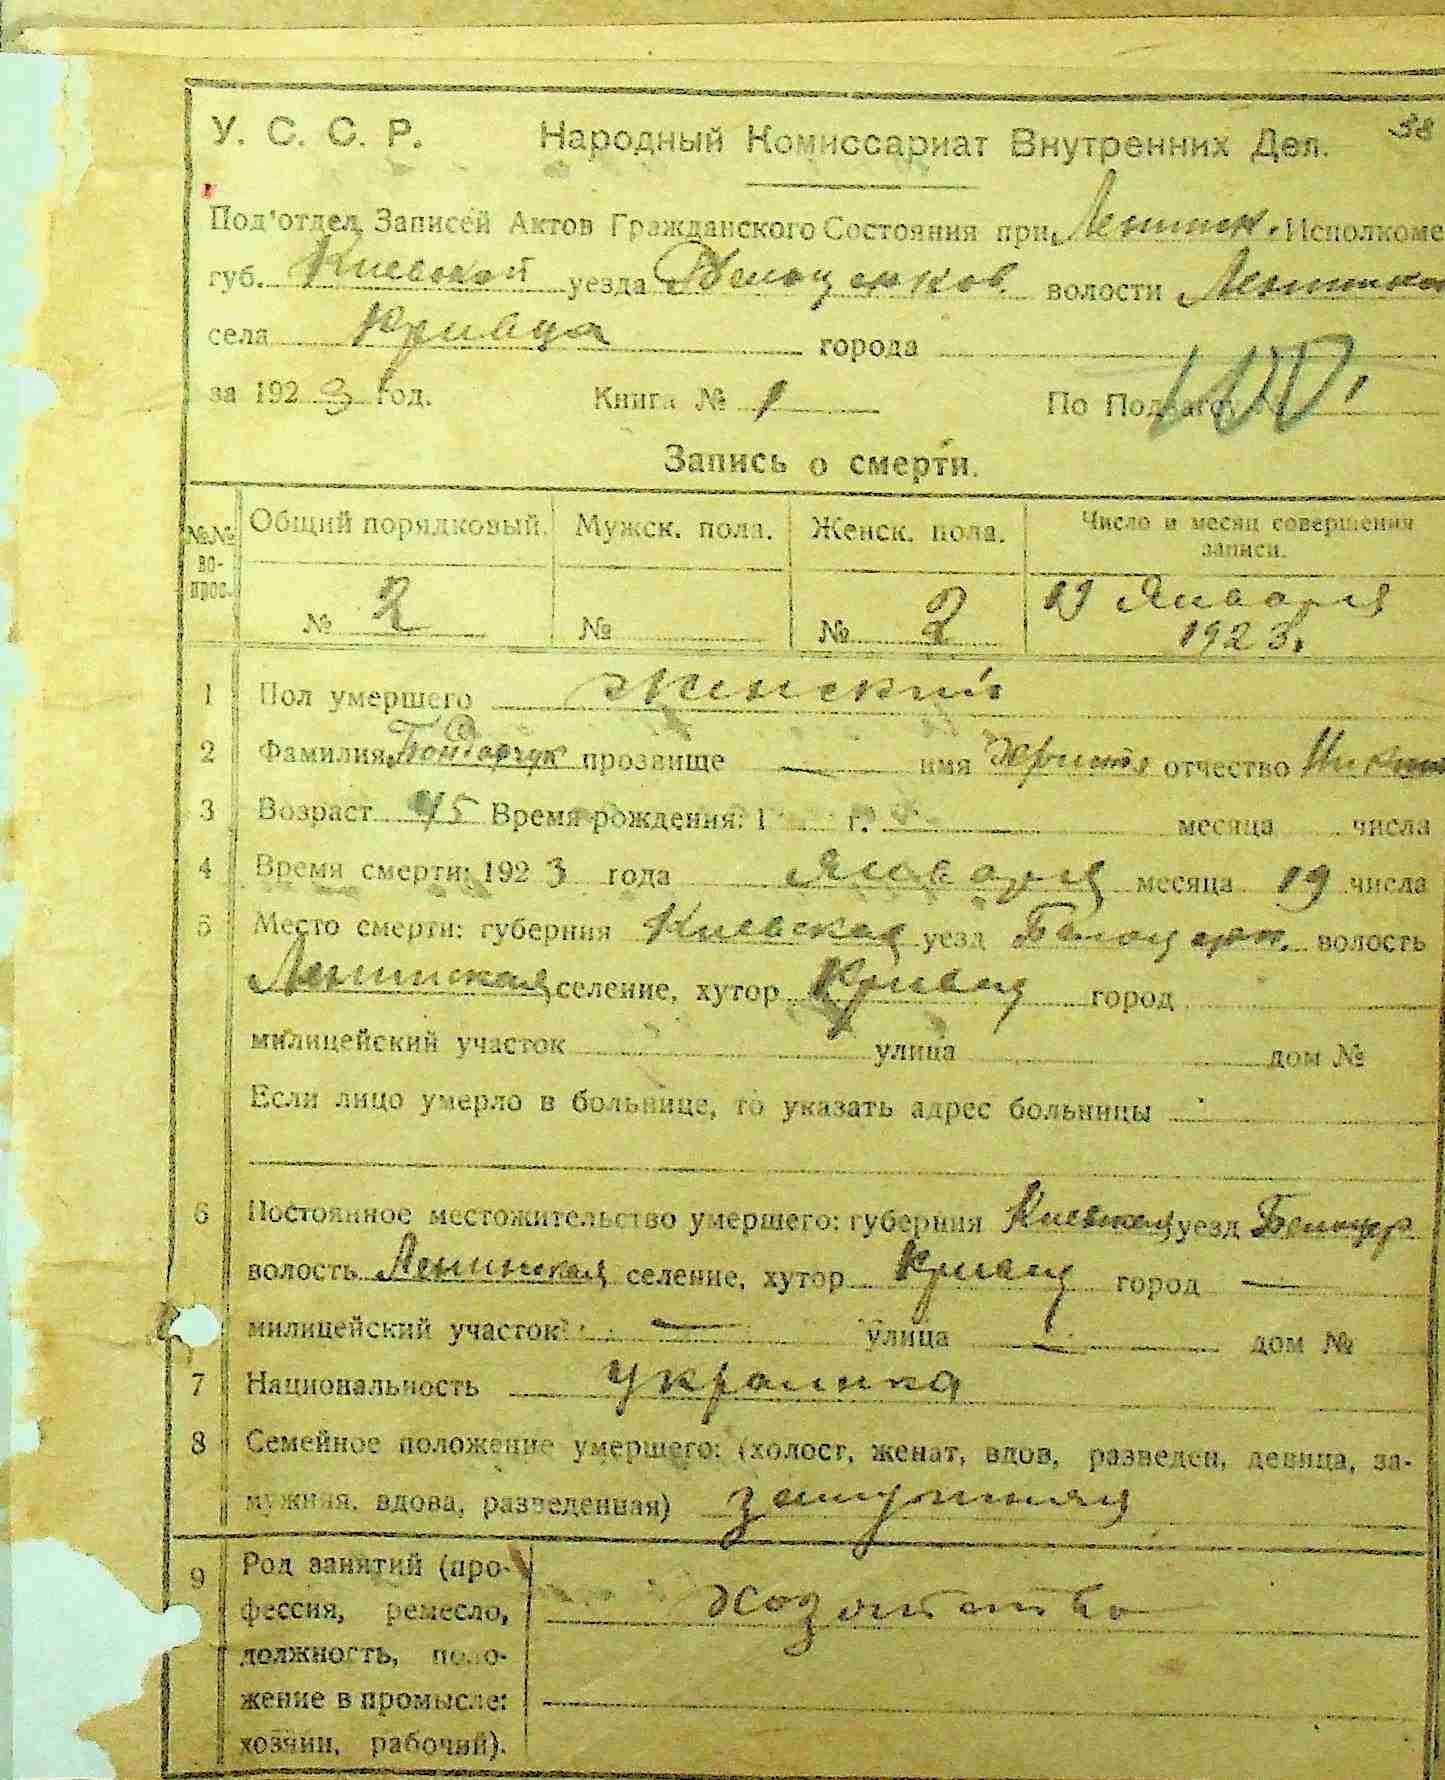 38
У. С. С. Р. Народный Комиссариат Внутренних Дел.
Под'отдел Записей Актов Гражданского Состояния при Ленинск. Исполкоме
губ. Киевской уезда Белоцерков. волости
села Кривца города
за 1923 год. Книга № 1 По
Запись о смерти.
№№ во-прос. Общий порядковый. Мужск. пола. Женск. пола. Число и месяц совершения записи.
№ 2 № № 2 19 Января 1923.
1 Пол умершего женский
2 Фамилия Бондарчук прозвище — имя Христя отчество
3 Возраст 45 Время рождения: 1 г. месяца числа
4 Время смерти: 1923 года Января месяца 19 числа
5 Место смерти: губерния Киевская уезд Белоцерк. волость
Ленинская селение, хутор Кривец город
милицейский участок улица дом №
Если лицо умерло в больнице, то указать адрес больницы
6 Постоянное местожительство умершего: губерния Киевская уезд Белоцер
волость Ленинская селение, хутор Кривец город —
милицейский участок — улица — дом №
7 Национальность украинка
8 Семейное положение умершего: (холост, женат, вдов, разведен, девица, за-
мужняя, вдова, разведенная) замужняя
9 Род занятий (про-
фессия, ремесло, хозяйство
должность, поло-
жение в промысле:
хозяин, рабочий).